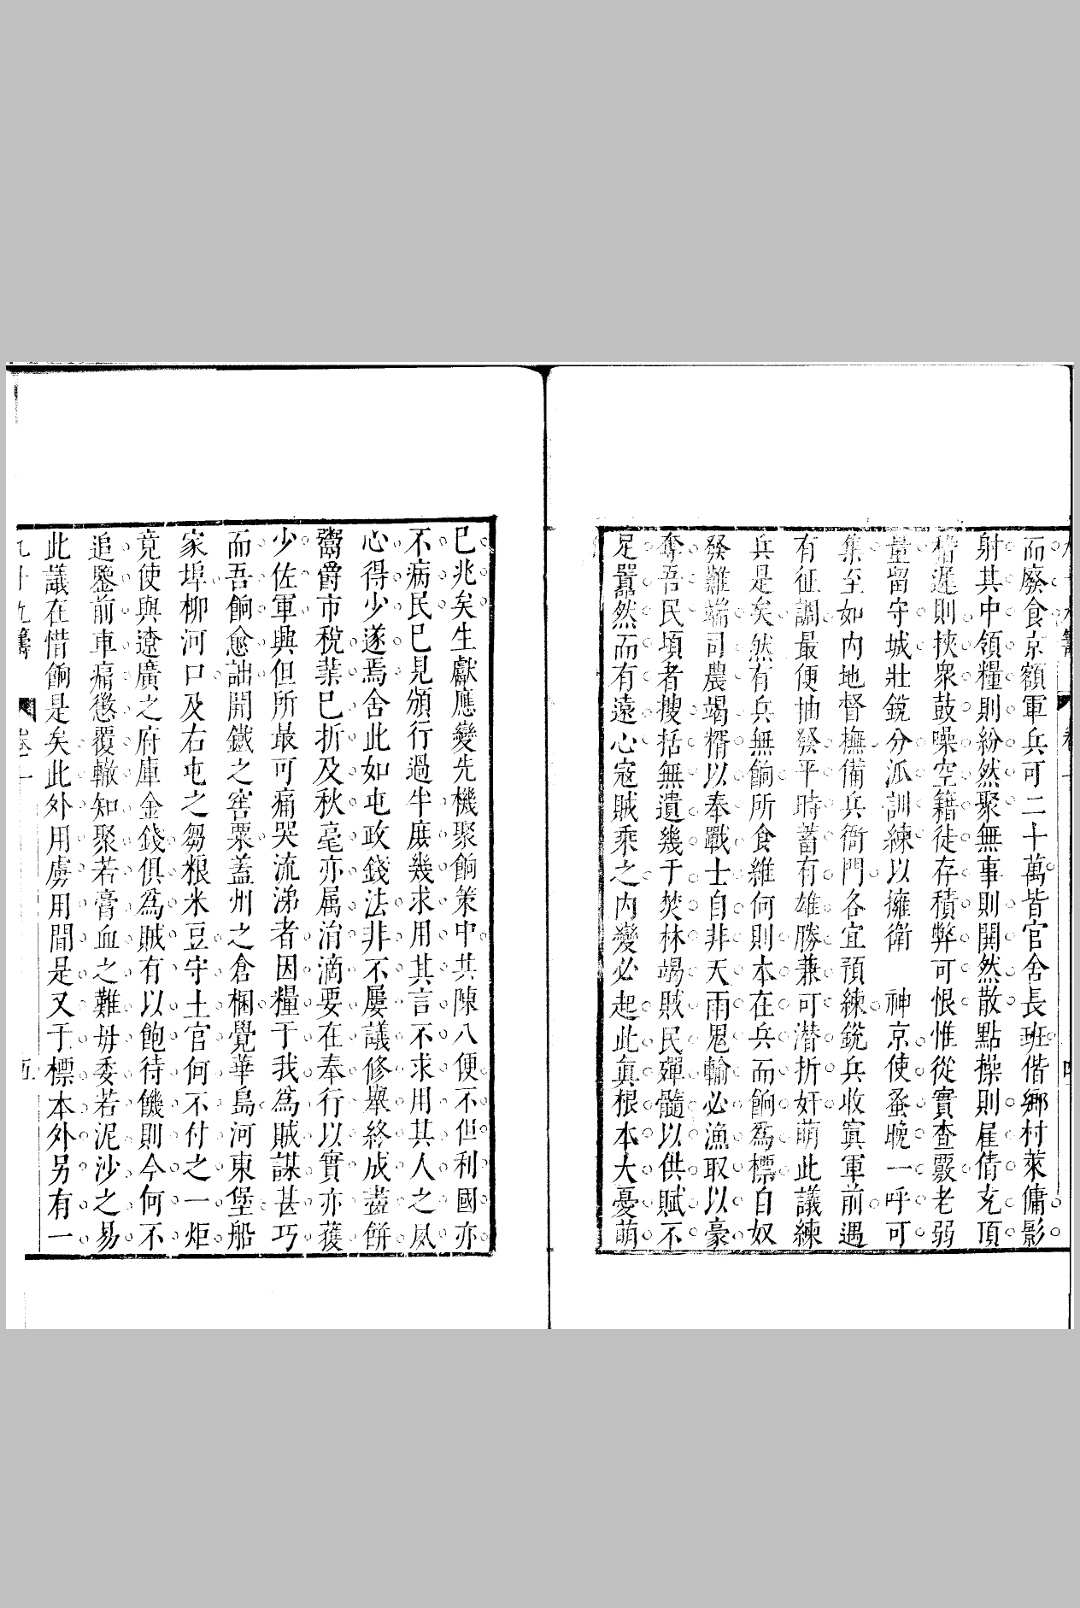 而廢食京額軍兵可二十萬皆官舍長班偕鄉村萊傭影
射其中領糧則紛然聚無事則閧然散點操則雇倩充頂
稽遲則挾衆鼓噪空籍徒存積弊可恨惟從實查覈老弱
量留守城壯銳分派訓練以擁衛　神京使蚤晚一呼可
集至如內地督撫備兵衙門各宜預練銳兵收寘軍前遇
有征調最便抽發平時蓄有雄勝兼可潛折奸萌此議練
兵是矣然有兵無餉所食維何則本在兵而餉為標自奴
發難端司農竭糈以奉戰士自非天雨鬼輸必漁取以豪
奪吾民頃者搜括無遺幾于焚林竭賊民殫髓以供賦不
足囂然而有遠心寇賊乘之內變必起此眞根本大憂萌
已兆矣生獻應變先機聚餉策中其陳八便不但利國亦
不病民已見頒行過半庶幾求用其言不求用其人之夙
心得少遂焉舍此如屯政錢法非不屢議修舉終成畫餅
鬻爵市稅業已折及秋毫亦屬治滴要在奉行以實亦獲
少佐軍興但所最可痛哭流涕者因糧于我為賊謀甚巧
而吾餉愈詘開鐵之窖粟蓋州之倉棞覺華島河東堡船
家埠柳河口及右屯之芻粮米豆守土官何不付之一炬
竟使與遼廣之府庫金錢俱為賊有以飽待饑則今何不
追鑒前車痛懲覆轍知聚若膏血之難毋委若泥沙之易
此議在惜餉是矣此外用虜用間是又于標本外另有一
九十九籌　卷二　五